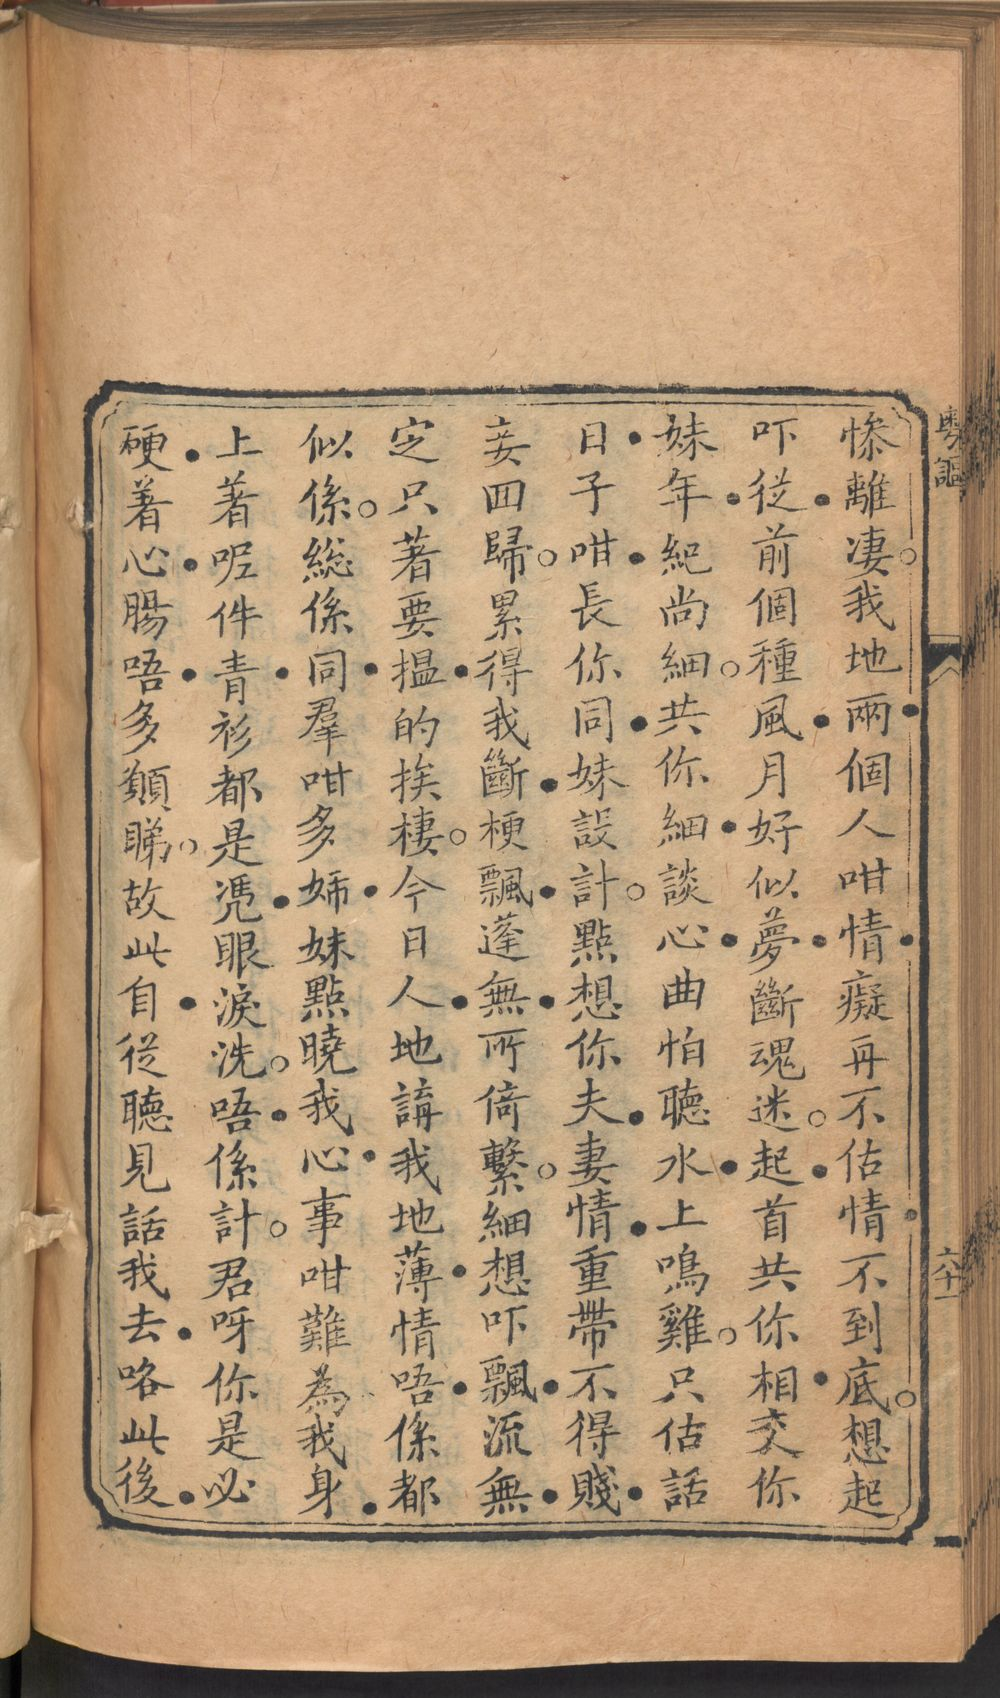 粵謳
六十一
慘離凄○我地兩個人咁情癡再不估情不到底○想起
吓從前個種風月好似夢斷魂迷○起首共你相交你
妹年紀尚細○共你細談心曲怕聽水上鳴雞○只估話
日子咁長你同妹設計○點想你夫妻情重帶不得賤
妾回歸○累得我斷梗飄蓬無所倚繫○細想吓飄流無
定只著要搵的挨棲○今日人地講我地薄情唔係都
似係○總係同羣咁多姊妹點曉我心事咁難為我身
上著呢件青衫都是凴眼淚洗○唔係計○君呀你是必
硬着心腸唔多顧睇○故此自從聽見話我去咯此後